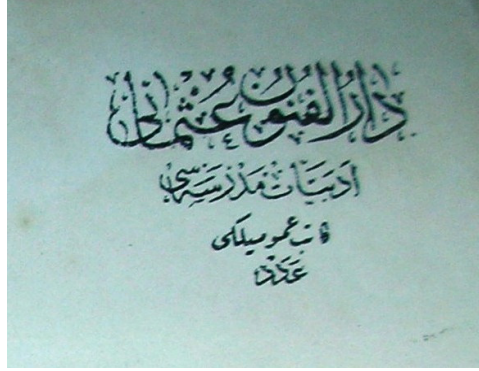 دار الفنون عثمانی
ادبیات مدرسه سی
کاتب عمومیلکی
عدد